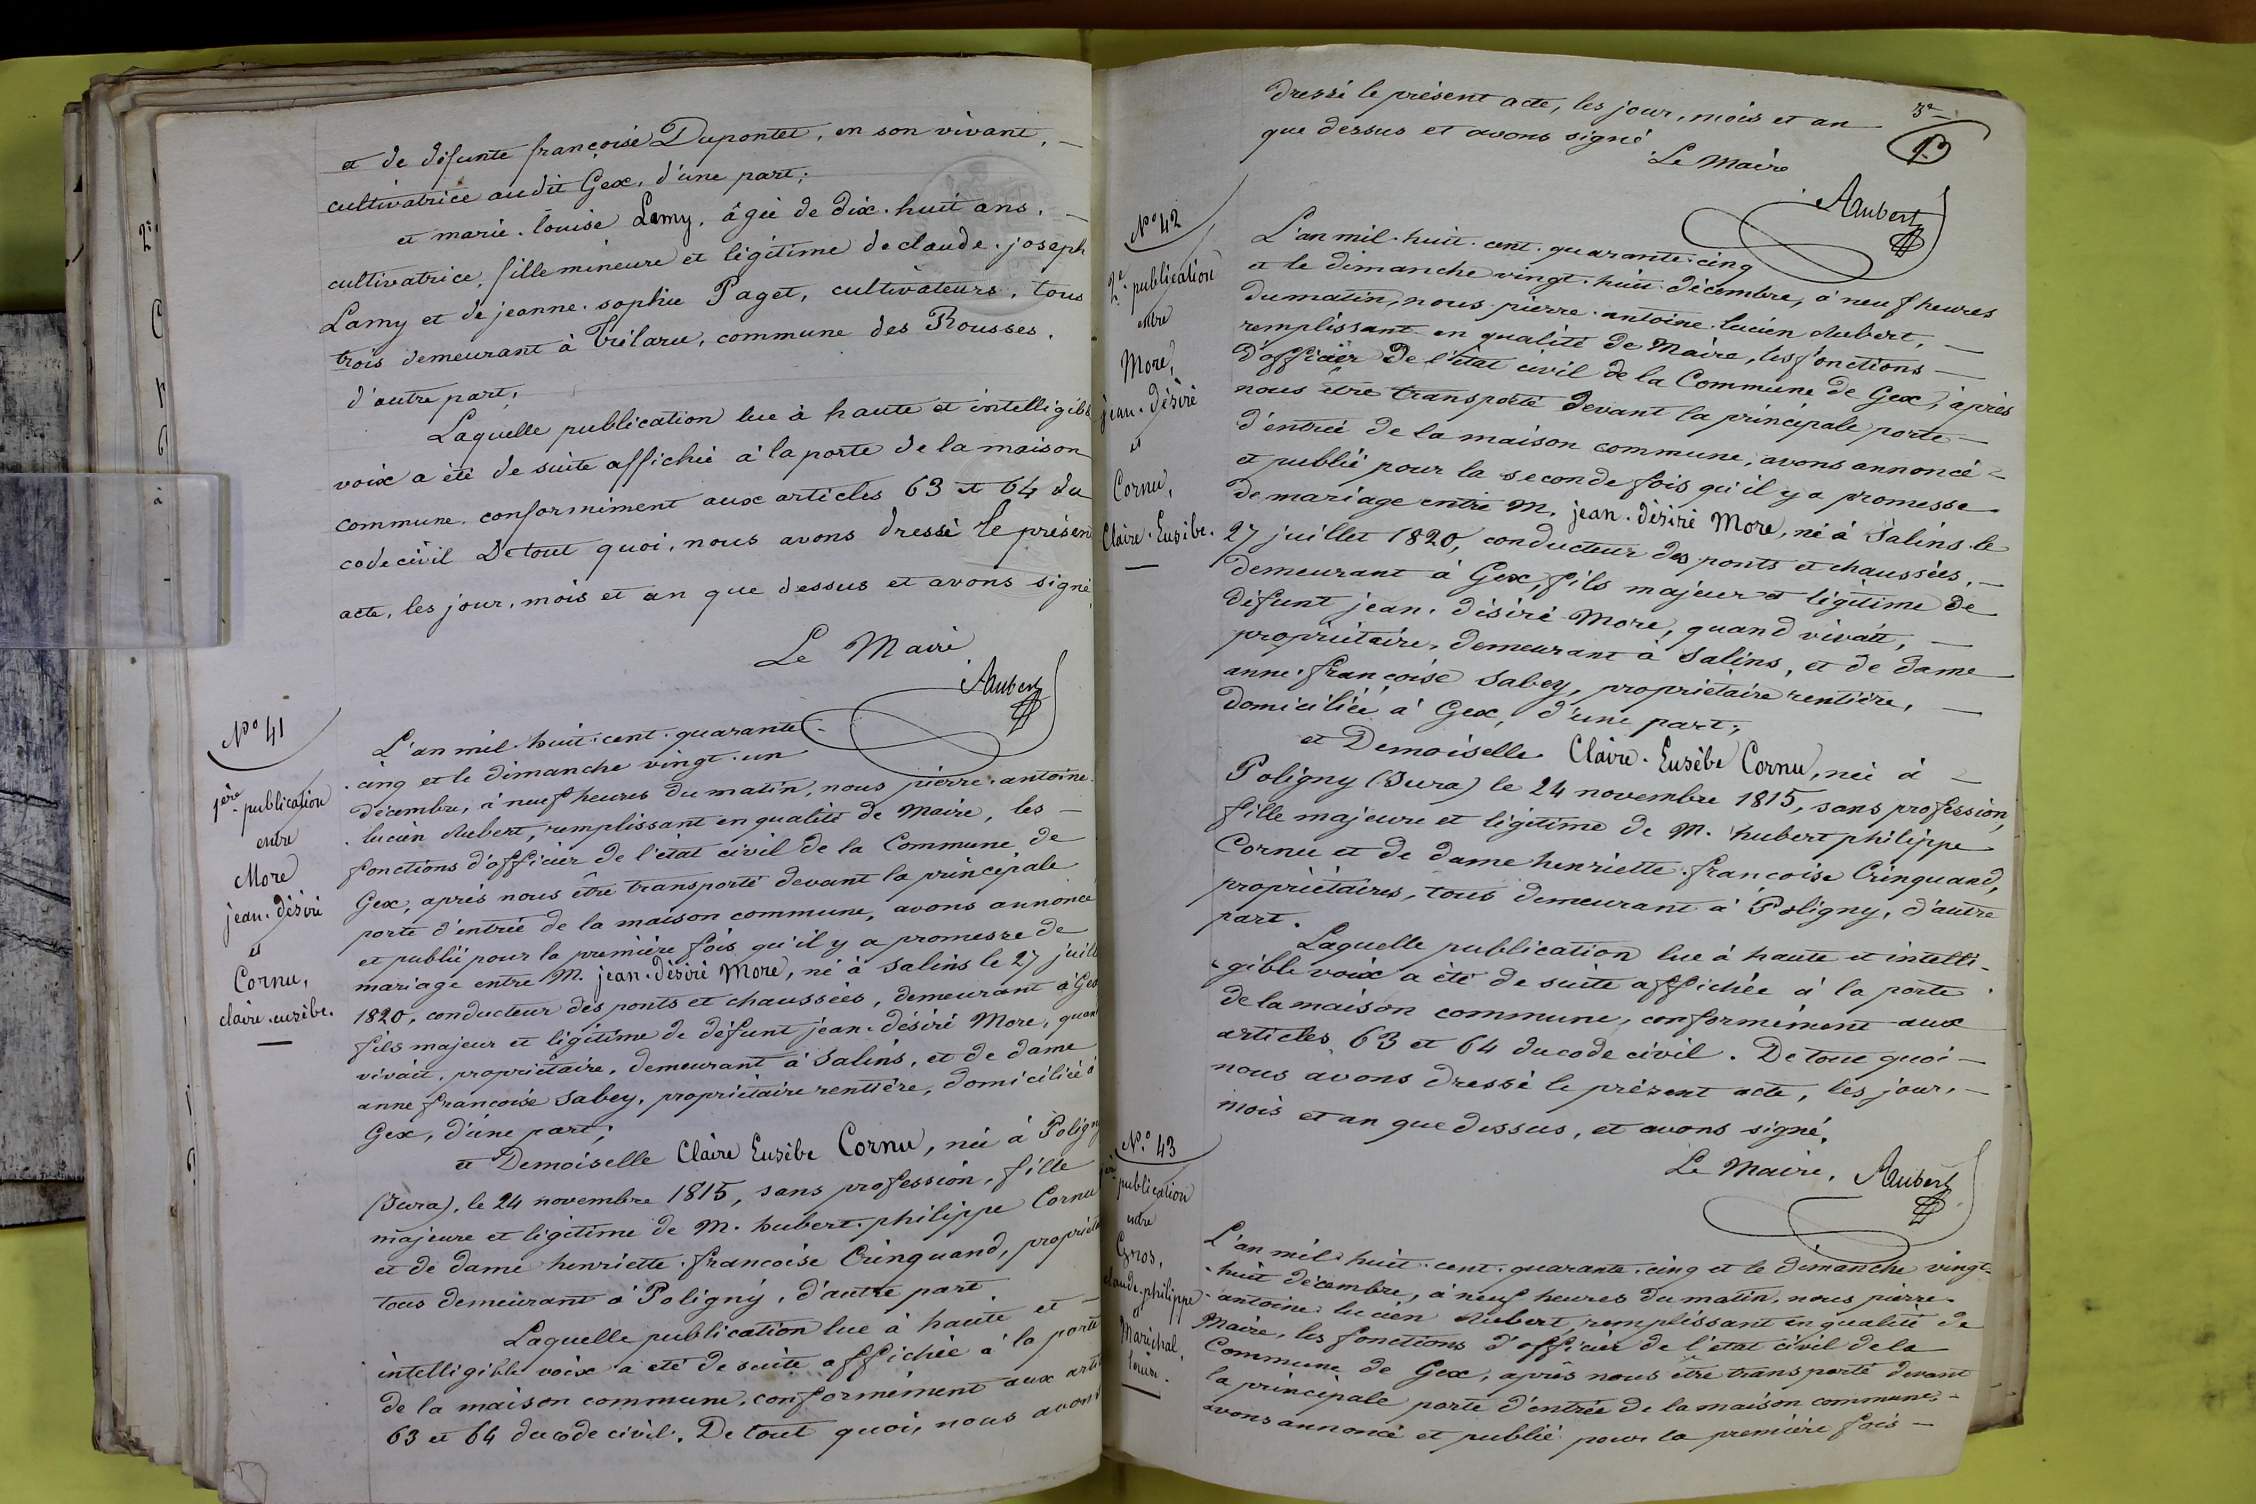 et de défunte françoise Dupontet, en son vivant, —
cultivatrice audit Gex, d'une part;
et marie-louise Lamy, âgée de dix-huit ans, —
cultivatrice, fille mineure et légitime de claude-joseph
Lamy et de jeanne-sophie Paget, cultivateurs, tous
trois demeurant à Trélarce, commune des Rousses,
d'autre part;
Laquelle publication lue à haute et intelligible
voix a été de suite affichée à la porte de la maison
commune, conformément aux articles 63 et 64 du
code civil De tout quoi, nous avons dressé le présent
acte, les jour, mois et an que dessus et avons signé,
Le Maire
Aubert
N.° 41
1ère publication
entre
More
jean-désiré
et
Cornu,
claire-eusèbe.
L'an mil-huit-cent-quarante-
-cinq et le dimanche vingt-un
décembre, à neuf heures du matin, nous pierre-antoine-
-lucien Aubert, remplissant en qualité de Maire, les —
fonctions d'officier de l'état civil de la Commune de
Gex, après nous être transporté devant la principale
porte d'entrée de la maison commune, avons annoncé
et publié pour la première fois qu'il y a promesse de
mariage entre M. jean-désiré More, né à Salins le 27 juill
1820, conducteur des ponts et chaussées, demeurant à Gex
fils majeur et légitime de défunt jean-désiré More, quan
vivait, propriétaire, demeurant à Salins, et de dame
anne françoise Sabey, propriétaire rentière, domiciliée à
Gex, d'une part;
et Demoiselle Claire Eusèbe Cornu, née à Poligny
(Jura), le 24 novembre 1815, sans profession, fille
majeure et légitime de M. hubert-philippe Cornu
et de dame henriette-françoise Crinquand, propriét
tous demeurant à Poligny, d'autre part.
Laquelle publication lue à haute et —
intelligible voix a été de suite affichée à la porte
de la maison commune, conformément aux arti
63 et 64 du code civil. De tout quoi, nous avons
3e
dressé le présent acte, les jour, mois et an
que dessus et avons signé
Le Maire
Aubert
N° 42
2e publication
entre
More,
jean-désiré
et
Cornu,
Claire-Eusèbe.
L'an mil-huit-cent-quarante-cinq
et le dimanche vingt-huit décembre, à neuf heures
du matin, nous pierre-antoine-lucien Aubert, —
remplissant en qualité de Maire, les fonctions —
d'officier de l'état civil de la Commune de Gex, après
nous être transporté devant la principale porte —
d'entrée de la maison commune, avons annoncé —
et publié pour la seconde fois qu'il y a promesse
de mariage entre M. jean-désiré More, né à Salins le
27 juillet 1820, conducteur des ponts et chaussées, —
demeurant à Gex, fils majeur et légitime de
défunt jean-désiré More, quand vivait, —
propriétaire, demeurant à Salins, et de dame
anne-françoise Sabey, propriétaire rentière, —
domiciliée à Gex, d'une part;
et Demoiselle Claire-Eusèbe Cornu, née à —
Poligny (Jura) le 24 novembre 1815, sans profession,
fille majeure et légitime de M. hubert philippe
Cornu et de dame henriette-françoise Crinquand,
propriétaires, tous demeurant à Poligny, d'autre
part.
Laquelle publication lue à haute et intelli-
-gible voix a été de suite affichée à la porte
de la maison commune, conformément aux
articles 63 et 64 du code civil. De tout quoi —
nous avons dressé le présent acte, les jour, —
mois et an que dessus, et avons signé.
Le Maire, Aubert
N.° 43
publication
entre
Gros,
claude-philippe
et
Maréchal,
louise.
L'an mil-huit-cent-quarante-cinq et le dimanche vingt-
-huit décembre, à neuf heures du matin, nous pierre-
-antoine-lucien Aubert, remplissant en qualité de
Maire, les fonctions d'officier de l'état civil de la
Commune de Gex, après nous être transporté devant
la principale porte d'entrée de la maison commune, —
avons annoncé et publié pour la première fois —